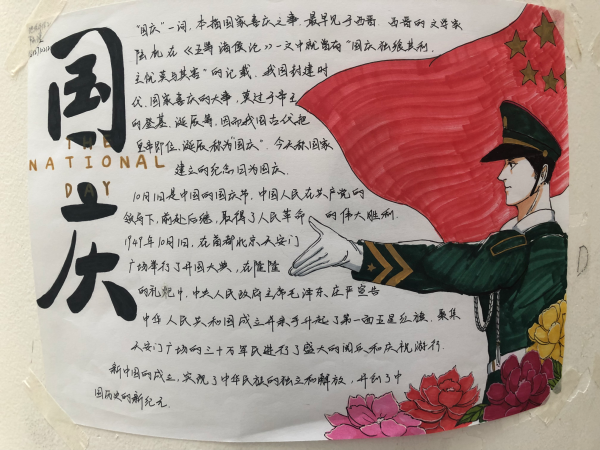 国庆
THE
NATIONAL
DAY
"国庆"一词,本指国家喜庆之事,最早见于西晋。西晋的文学家
陆机在《五等诸侯论》一文中就曾有"国庆独飨其利,
主忧莫与其害"的记载,我国封建时
代,国家喜庆的大事,莫过于帝王
的登基、诞辰等,因而我国古代把
皇帝即位、诞辰称为"国庆"。今天称国家
建立的纪念日为国庆。
10月1日是中国的国庆节,中国人民在共产党的
领导下,前赴后继,取得了人民革命的伟大胜利.
1949年10月1日,在首都北京天安门
广场举行了开国大典,在隆隆
的礼炮中,中央人民政府主席毛泽东庄严宣告
中华人民共和国成立并亲手升起了第一面五星红旗.聚集
天安门广场的三十万军民进行了盛大的阅兵和庆祝游行.
新中国的成立,实现了中华民族的独立和解放,开创了中
国历史的新纪元.